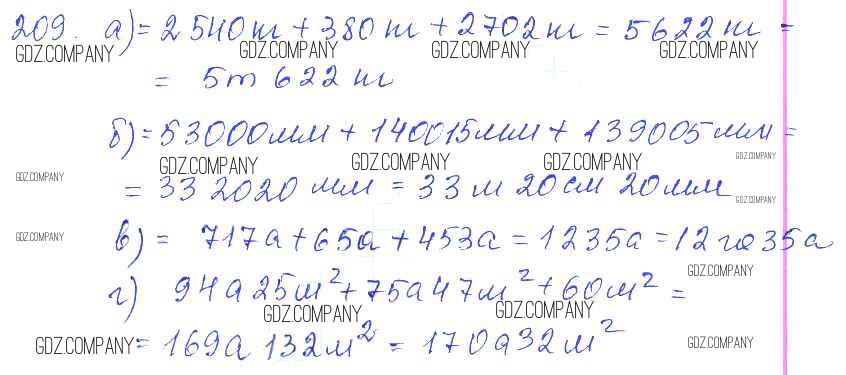 209. а) = 2 540 кг + 380 кг + 2702 кг = 5622 кг =
GDZ.COMPANY GDZ.COMPANY GDZ.COMPANY GDZ.COMPANY
= 5т 622 кг
б) = 53000мм + 140015мм + 139005мм =
GDZ.COMPANY GDZ.COMPANY GDZ.COMPANY GDZ.COMPANY GDZ.COMPANY
= 33 2020 мм = 33 м 20 см 20 мм
GDZ.COMPANY
в) = 717а + 65а + 453а = 1235а = 12 га 35а
GDZ.COMPANY
г) 94а 25м² + 75а 47м² + 60м² =
GDZ.COMPANY GDZ.COMPANY GDZ.COMPANY
= 169а 132м² = 170а 32м²
GDZ.COMPANY GDZ.COMPANY